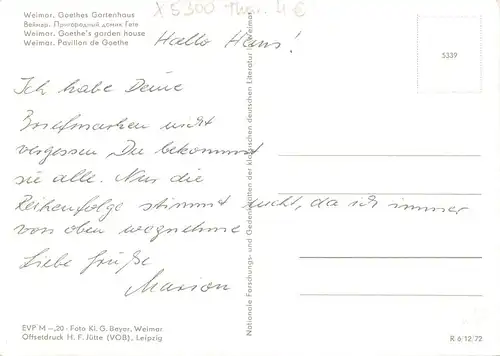 Weimar. Goethes Gartenhaus
Веймар. Пригородный домик Гете
Weimar. Goethe's garden house
Weimar. Pavillon de Goethe
X 5300 Thür. 4€
5339
Hallo Hans!
Ich habe Deine
Briefmarken nicht
vergessen Du bekommst
sie alle. Nur die
Reihenfolge stimmt nicht, da ich immer
von oben wegnehme
Liebe Grüße
Marion
Nationale Forschungs- und Gedenkstätten der klassischen deutschen Literatur in Weimar
EVP M -,20 · Foto Kl. G. Beyer, Weimar
Offsetdruck H. F. Jütte (VOB), Leipzig
R 6/12/72